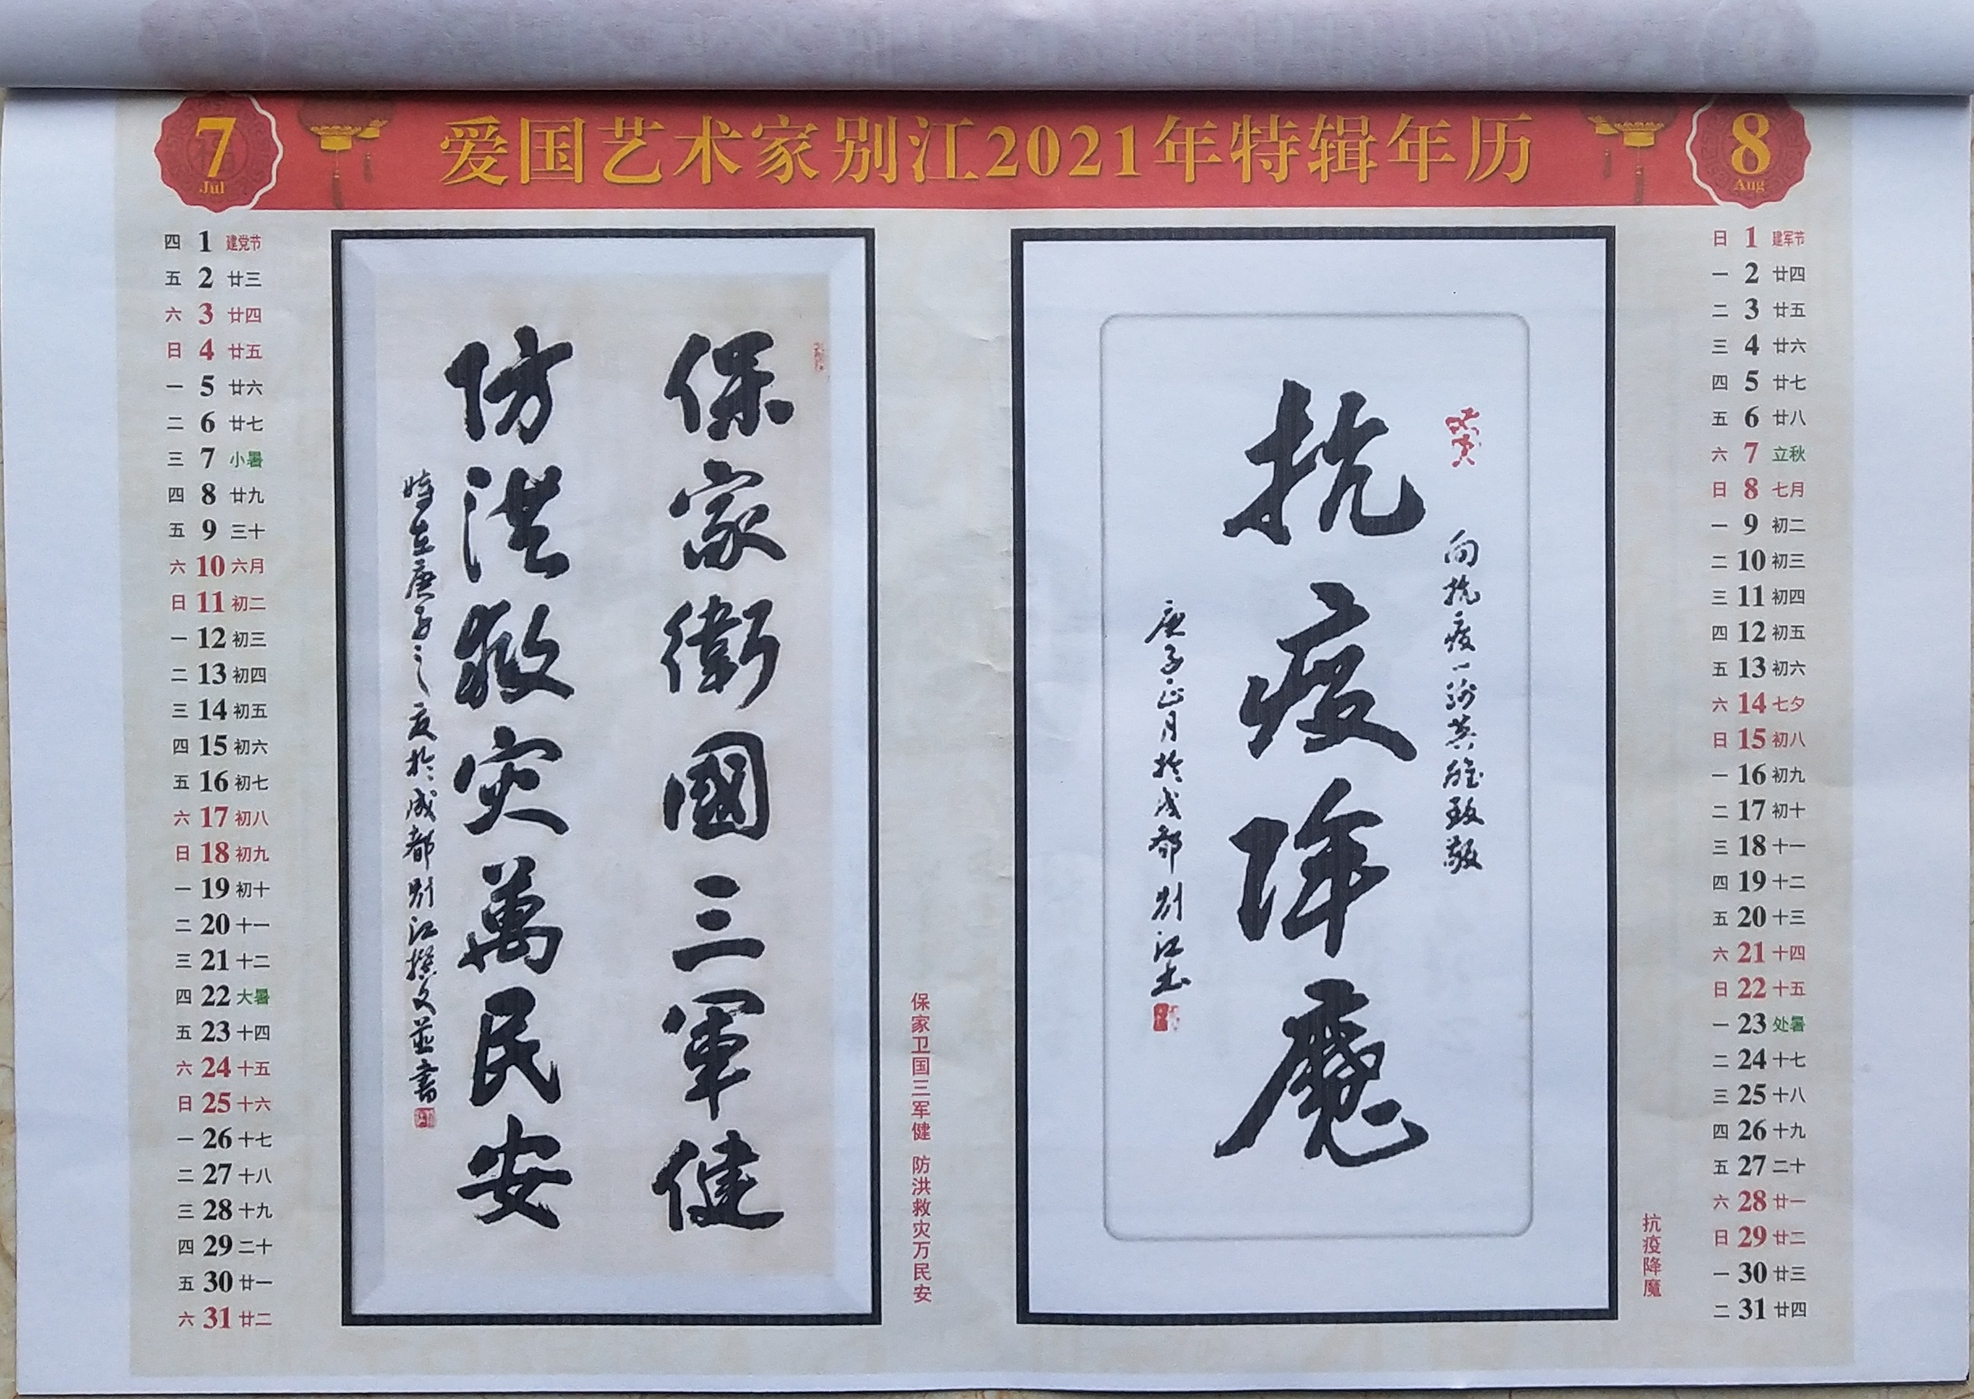 爱国艺术家别江2021年特辑年历
7
Jul
四 1 建党节
五 2 廿三
六 3 廿四
日 4 廿五
一 5 廿六
二 6 廿七
三 7 小暑
四 8 廿九
五 9 三十
六 10 六月
日 11 初二
一 12 初三
二 13 初四
三 14 初五
四 15 初六
五 16 初七
六 17 初八
日 18 初九
一 19 初十
二 20 十一
三 21 十二
四 22 大暑
五 23 十四
六 24 十五
日 25 十六
一 26 十七
二 27 十八
三 28 十九
四 29 二十
五 30 廿一
六 31 廿二
保家衛國三軍健
防洪救灾萬民安
時在庚子之夏於成都别江撰文並書
保家卫国三军健 防洪救灾万民安
向抗疫一线英雄致敬
抗疫降魔
庚子正月於成都别江书
抗疫降魔
8
Aug
日 1 建军节
一 2 廿四
二 3 廿五
三 4 廿六
四 5 廿七
五 6 廿八
六 7 立秋
日 8 七月
一 9 初二
二 10 初三
三 11 初四
四 12 初五
五 13 初六
六 14 七夕
日 15 初八
一 16 初九
二 17 初十
三 18 十一
四 19 十二
五 20 十三
六 21 十四
日 22 十五
一 23 处暑
二 24 十七
三 25 十八
四 26 十九
五 27 二十
六 28 廿一
日 29 廿二
一 30 廿三
二 31 廿四